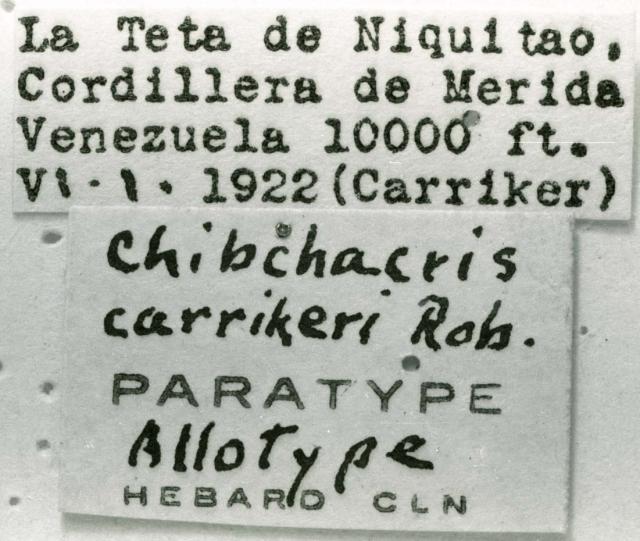 La Teta de Niquitao,
Cordillera de Merida
Venezuela 10000 ft.
VI.1. 1922(Carriker)
Chibchacris
carrikeri Rob.
PARATYPE
Allotype
HEBARD CLN